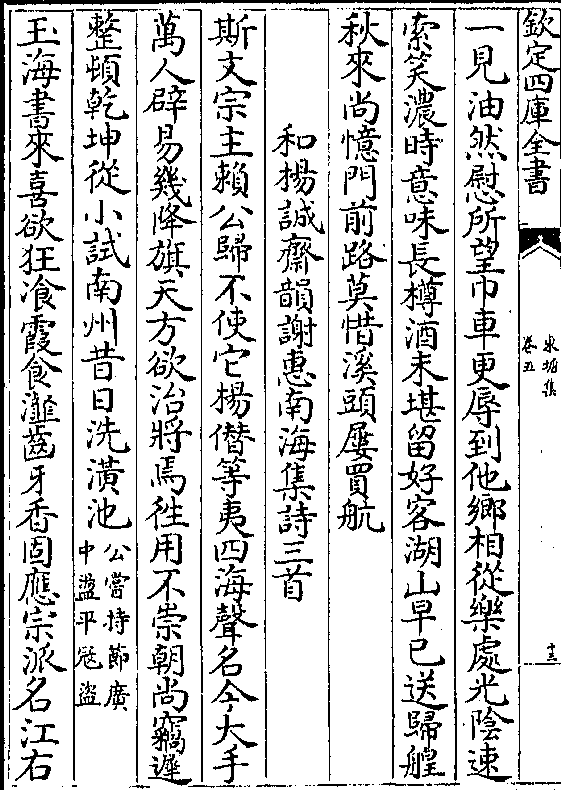 欽定四庫全書
東塘集
卷五
十三
一見油然慰所望巾車更辱到他鄉相從樂處光陰速
索笑濃時意味長樽酒未堪留好客湖山早已送歸艎
秋來尚憶門前路莫惜溪頭屢買航
和楊誠齋韻謝惠南海集詩三首
斯文宗主賴公歸不使它楊僭等夷四海聲名今大手
萬人辟易幾降旗天方欲治將焉往用不崇朝尚竊遲
整頓乾坤從小試南州昔日洗潢池公嘗持節廣
中盪平冦盜
玉海書來喜欲狂飡霞食瀣齒牙香固應宗派名江右